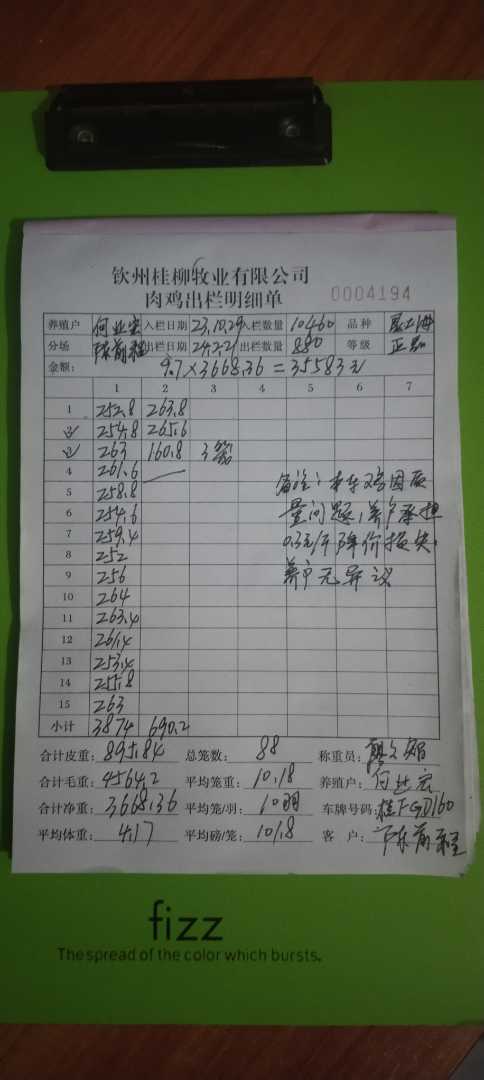 钦州桂柳牧业有限公司
肉鸡出栏明细单 0004194
养殖户 何业宏 入栏日期 23.10.29 入栏数量 10460 品种
分场 陈前程 出栏日期 24.2.21 出栏数量 880 等级 正品
金额: 9.7×3668.36=35583元
1 2 3 4 5 6 7
1 252.8 263.8
2 254.8 265.6
3 263 160.8 3笼
4 261.6
5 258.8
6 254.6
7 259.4
8 252
9 256
10 264
11 263.4
12 261.4
13 253.4
14 255.8
15 263
备注:本车鸡因质
量问题,养户承担
0.3元/斤降价损失,
养户无异议
小计 3874 690.2
合计皮重: 895.84 总笼数: 88 称重员:
合计毛重: 4564.2 平均笼重: 10.18 养殖户: 何业宏
合计净重: 3668.36 平均笼/羽: 10羽 车牌号码: 桂FGD160
平均体重: 4.17 平均磅/笼: 10/.8 客 户: 陈前程
fizz
The spread of the color which bursts.